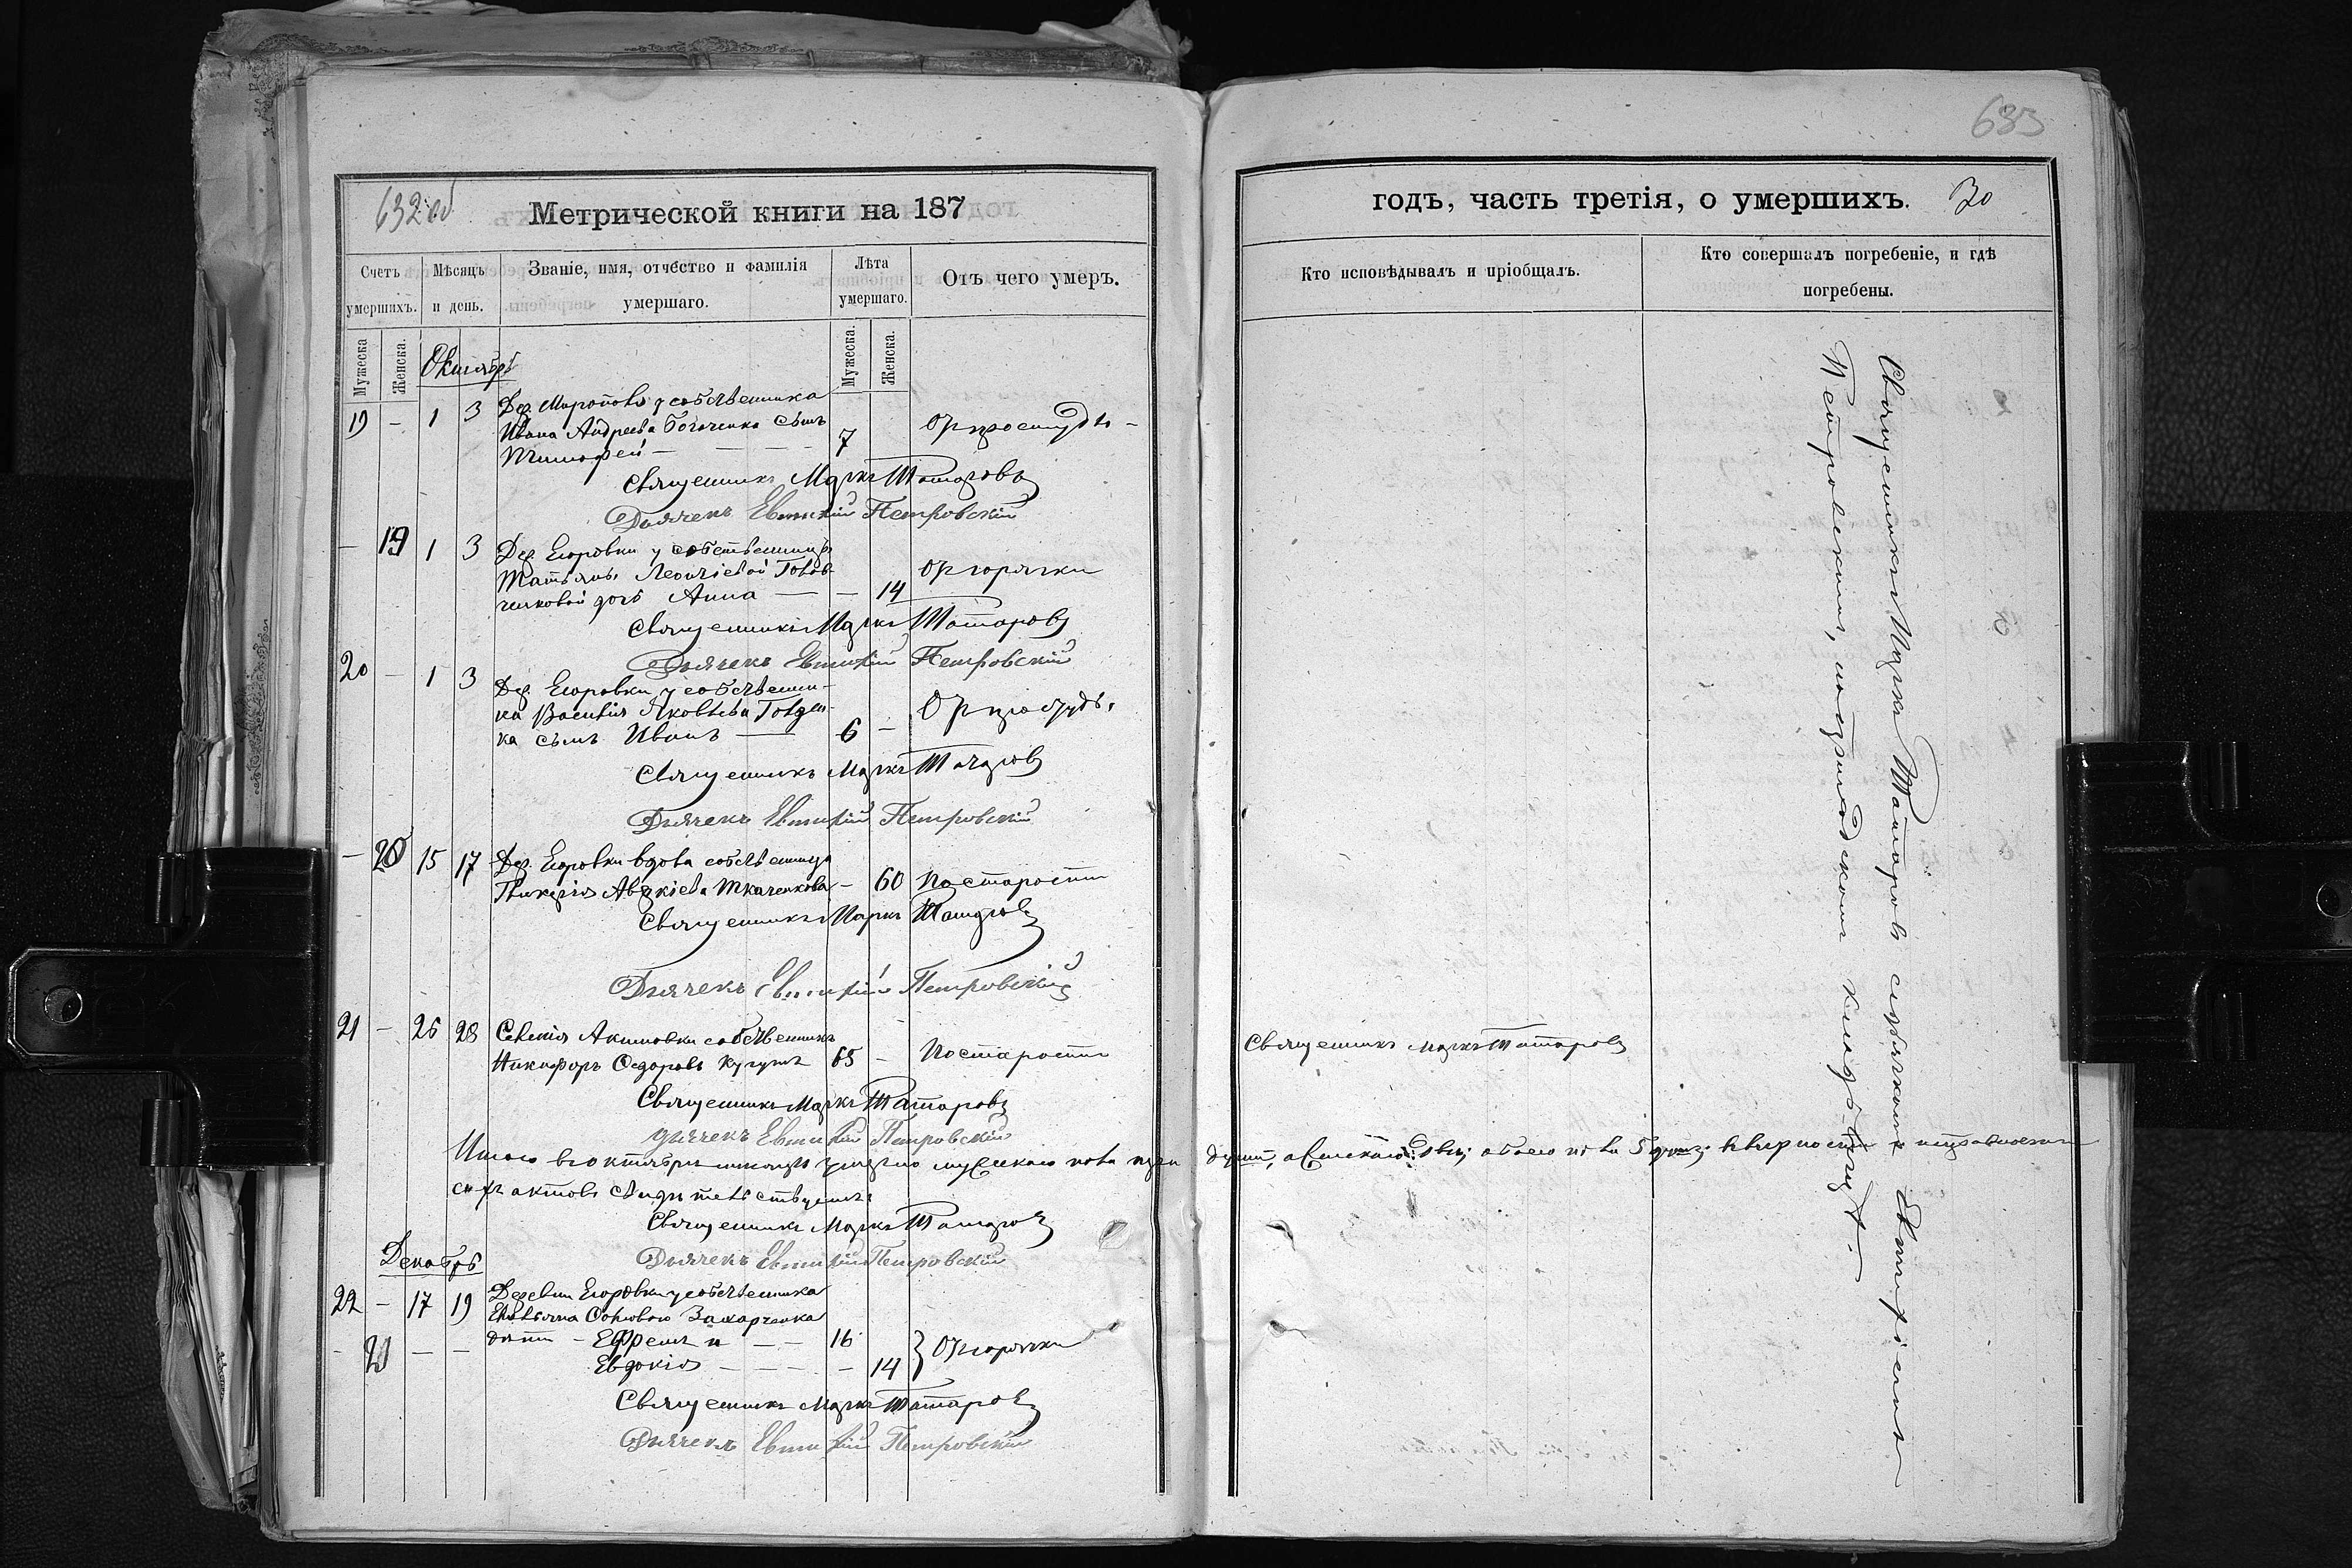 632 об
Метрической книги на 187
Счетъ умершихъ.
Мѣсяцъ и день.
Званіе, имя, отчество и фамилія умершаго.
Лѣта умершаго.
Отъ чего умеръ.
Мужеска
Женска.
Мужеска.
Женска.
Октябрь
19 - 1 3 Дер. собственника
Ивана Андреева сынъ
Тимофей — 7 От простуды -
Священникъ Маркъ Татаровъ
Дьячекъ Евтихій Петровскій
- 19 1 3 Дер. Егоровки у собственницы
Татьяны Леонтіевой
дочь Анна — - 14 От горячки
Священникъ Маркъ Татаровъ
Дьячекъ Евтихій Петровскій
20 - 1 3 Дер. Егоровки у собственни-
ка Василія Яковлева
ка сынъ Иванъ — 6 - От простуды.
Священникъ Маркъ Татаровъ
Дьячекъ Евтихій Петровскій
- 20 15 17 Дер. Егоровки вдова собственница
Гликерія Ткаченкова - 60 По старости
Священникъ Маркъ Татаровъ
Дьячекъ Евтихій Петровскій
21 - 26 28 Селенія Акимовки собственникъ
Никифоръ Федоровъ 65 - По старости
Священникъ Маркъ Татаровъ
дьячекъ Евтихій Петровскій
Итого в октябрѣ мѣсяцѣ умерло мужескаго пола
актовъ свидѣтельствуемъ:
Священникъ Маркъ Татаровъ
Дьячекъ Евтихій Петровскій
Декабрь
22 - 17 19 Деревни Егоровки у собственника
Захарченка
дѣти - Ефремъ и — 16
- 21 - - Евдокія - - - - 14 } От горячки
Священникъ Маркъ Татаровъ
Дьячекъ Евтихій Петровскій
633
годъ, часть третія, о умершихъ.
30
Кто исповѣдывалъ и пріобщалъ.
Кто совершалъ погребеніе, и гдѣ погребены.
Священникъ Маркъ Татаровъ
душъ, а женскаго двѣ; обоего пола 5 душъ; в вѣрности
Священникъ Маркъ Татаровъ с дьячкомъ Евтихіемъ
Петровскимъ, на приходскомъ кладбищѣ. —